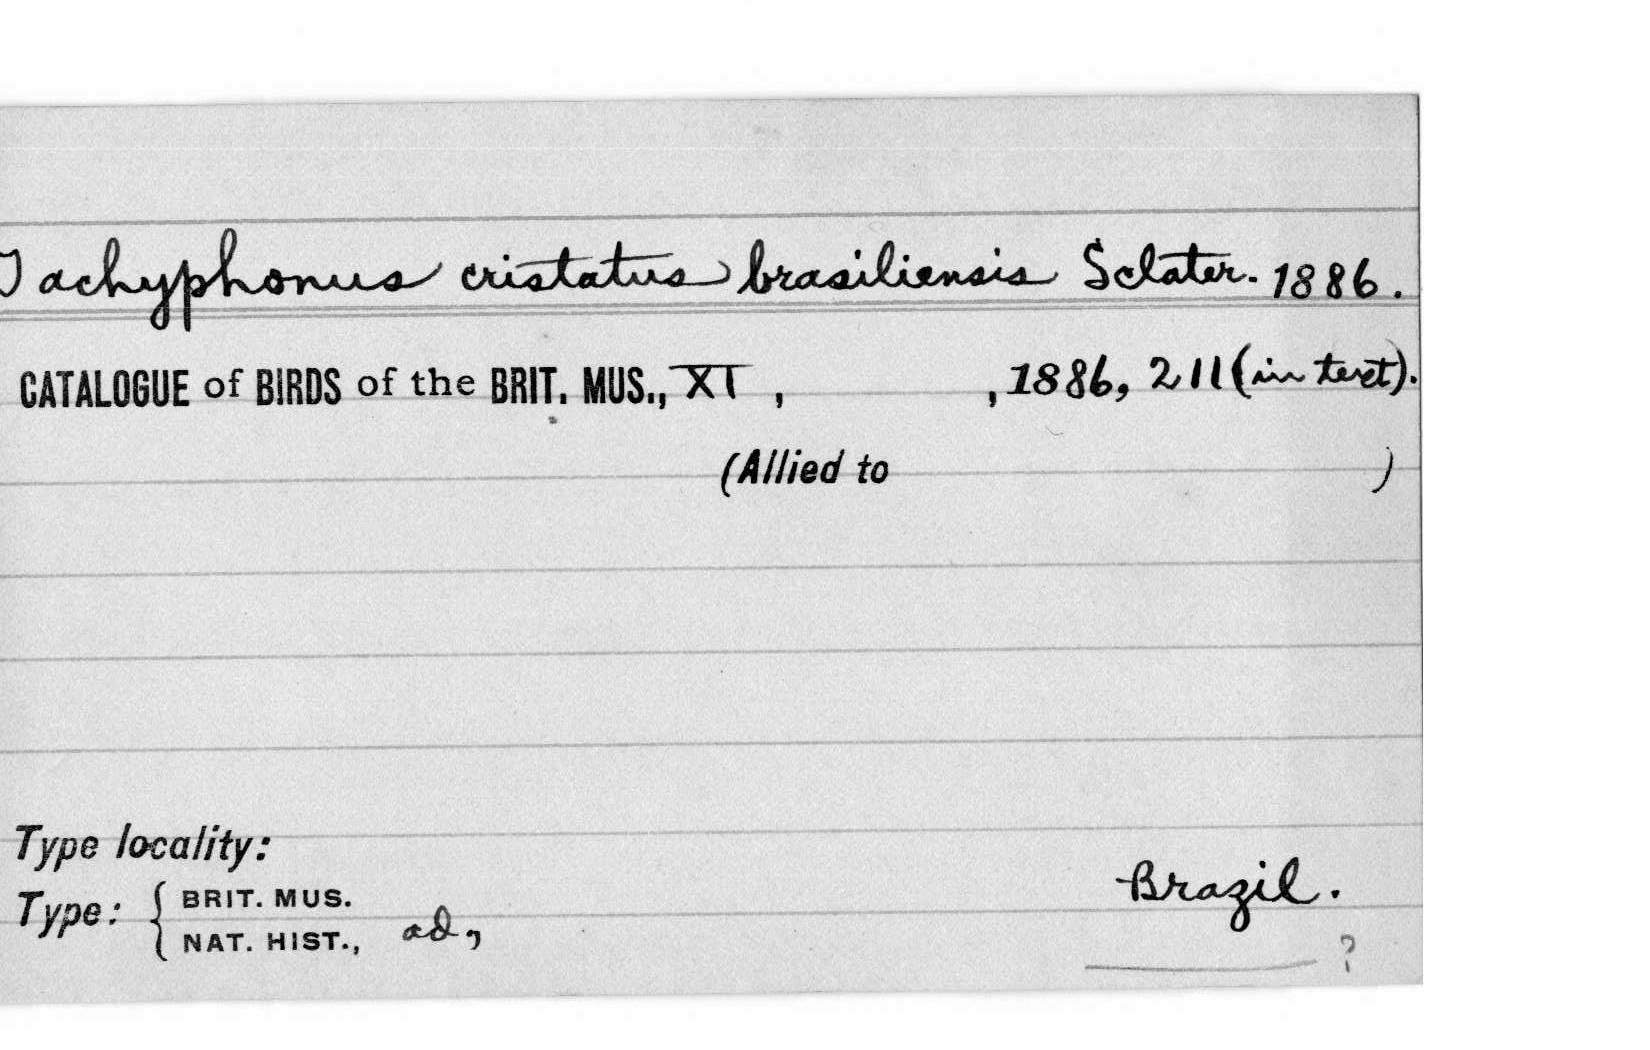 Tachyphonus cristatus brasiliensis Sclater. 1886.
CATALOGUE of BIRDS of the BRIT. MUS., XI , , 1886, 211 (in text).
(Allied to )
Type locality:
Brazil.
Type: { BRIT. MUS.
NAT. HIST., ad,
?